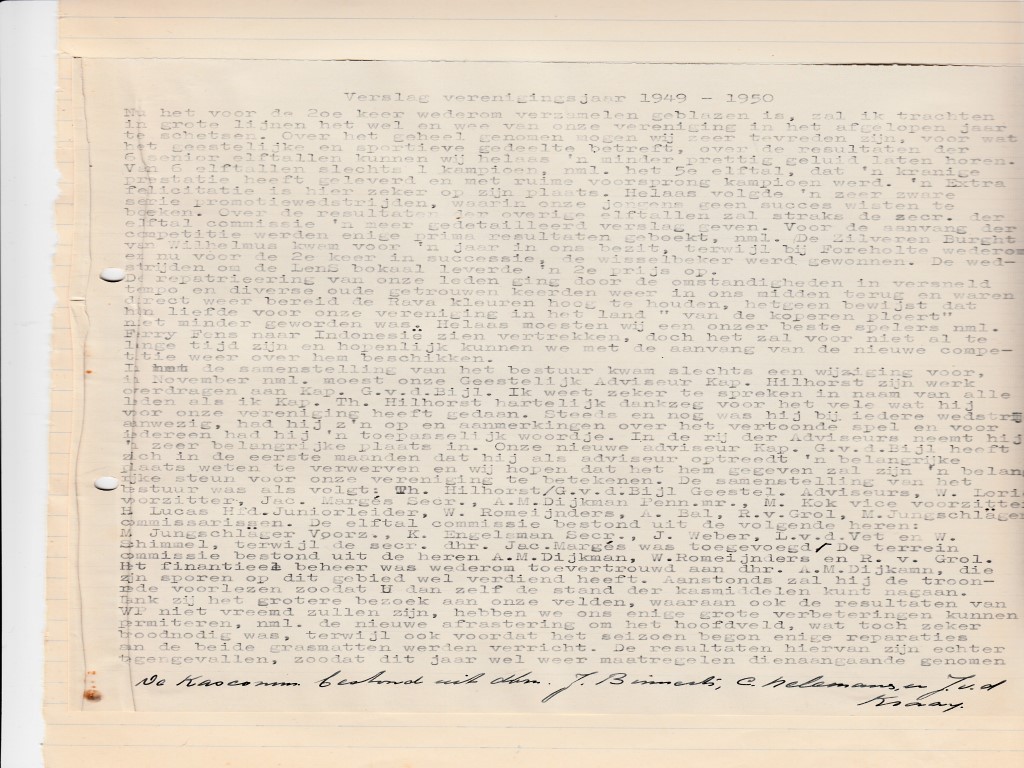 Verslag verenigingsjaar 1949 - 1950
Nu het voor de 2oe keer wederom verzamelen geblazen is, zal ik trachten
in grote lijnen het wel en wee van onze vereniging in het afgelopen jaar
te schetsen. Over het geheel genomen mogen wij zeer tevreden zijn, voor wat
het geestelijke en sportieve gedeelte betreft, over de resultaten der
6 senior elftallen kunnen wij helaas 'n minder prettig geluid laten horen.
Van 6 elftallen slechts 1 kampioen, nml. het 5e elftal, dat 'n kranige
prestatie heeft geleverd en met ruime voorsprong kampioen werd. 'n Extra
felicitatie is hier zeker op zijn plaats. Helaas volgde 'n zeer zware
serie promotiewedstrijden, waarin onze jongens geen succes wisten te
boeken. Over de resultaten der overige elftallen zal straks de secr. der
elftal commissie 'n meer gedetailleerd verslag geven. Voor de aanvang der
competitie werden enige prima resultaten geboekt, nml. De Zilveren Burght
van Wilhelmus kwam voor 'n jaar in ons bezit, terwijl bij Foreholte wederom
en nu voor de 2e keer in successie, de wisselbeker werd gewonnen. De wed-
strijden om de LenS bokaal leverde 'n 2e prijs op.
De repatrieering van onze leden ging door de omstandigheden in versneld
tempo en diverse oude getrouwen keerden weer in ons midden terug en waren
direct weer bereid de Rava kleuren hoog te houden, hetgeen bewijst dat
hun liefde voor onze vereniging in het land " van de koperen ploert"
niet minder geworden was. Helaas moesten wij een onzer beste spelers nml.
Ferry Fens naar Indonesië zien vertrekken, doch het zal voor niet al te
lange tijd zijn en hopenlijk kunnen we met de aanvang van de nieuwe compe-
titie weer over hem beschikken.
In de samenstelling van het bestuur kwam slechts een wijziging voor,
in November nml. moest onze Geestelijk Adviseur Kap. Hilhorst zijn werk
overdragen aan Kap. G.v.d.Bijl. Ik weet zeker te spreken in naam van alle
leden als ik Kap. Th. Hilhorst hartelijk dankzeg voor het vele wat hij
voor onze vereniging heeft gedaan. Steeds en nog was hij bij iedere wedstr
anwezig, had hij z'n op en aanmerkingen over het vertoonde spel en voor
iedereen had hij 'n toepasselijk woordje. In de rij der Adviseurs neemt hij
'n zeer belangrijke plaats in. Onze nieuwe adviseur Kap. G.v.d.Bijl heeft
zich in de eerste maanden dat hij als adviseur optreedt 'n belangrijke
plaats weten te verwerven en wij hopen dat het hem gegeven zal zijn 'n belang
rijke steun voor onze vereniging te betekenen. De samenstelling van het
bestuur was als volgt: Th. Hilhorst/G.v.d.Bijl Geestel. Adviseurs, W. Loris
voorzitter, Jac. Margés Secr., A.M.Dijkman Penn.mr., M. Kok vice voorzitter
H Lucas Hfd.Juniorleider, W. Romeijnders, A. Bal, R.v.Grol, M.Jungschläger
commissarissen. De elftal commissie bestond uit de volgende heren:
M Jungschläger Voorz., K. Engelsman Secr., J. Weber, L.v.d.Vet en W.
Shimmel, terwijl de secr. dhr. Jac.Margés was toegevoegd. De terrein
commissie bestond uit de heren A.M.Dijkman, W.Romeijnders en R. v. Grol.
Ht financieel beheer was wederom toevertrouwd aan dhr. A.M.Dijkamn, die
zjn sporen op dit gebied wel verdiend heeft. Aanstonds zal hij de troon-
rede voorlezen zoodat U dan zelf de stand der kasmiddelen kunt nagaan.
Dank zij het grotere bezoek aan onze velden, waaraan ook de resultaten van
WP niet vreemd zullen zijn, hebben we ons enige grote verbeteringen kunnen
prmiteren, nml. de nieuwe afrastering om het hoofdveld, wat toch zeker
broodnodig was, terwijl ook voordat het seizoen begon enige reparaties
an de beide grasmatten werden verricht. De resultaten hiervan zijn echter
tgengevallen, zoodat dit jaar wel weer maatregelen dienaangaande genomen
De Kascomm. bestond uit dhn. J. Binnerts, C. Nelemans, en J. v. d
Kraay.